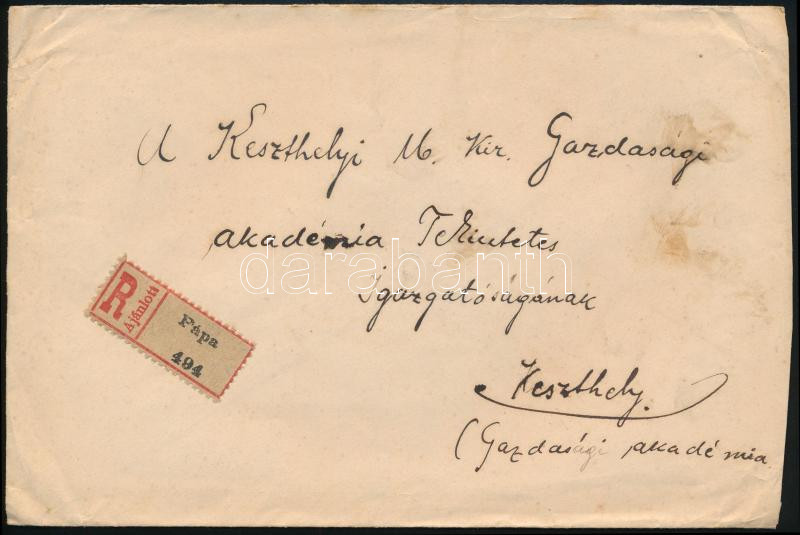 A Keszthelyi M. Kir. Gazdasági
akadémia Tekintetes
Igazgatóságának
Keszthely.
(Gazdasági akadémia
R
Ajánlott
Pápa
494
darabanth